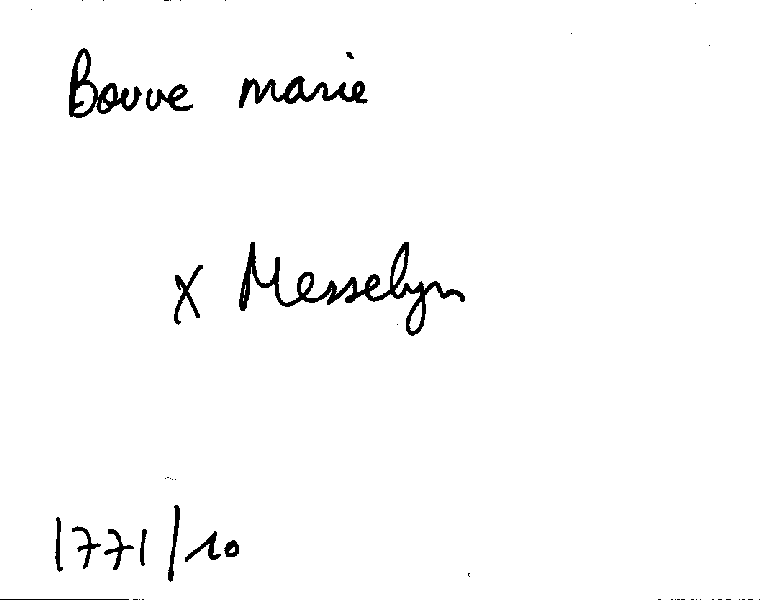 Bouve marie
x Messelyn
1771/10